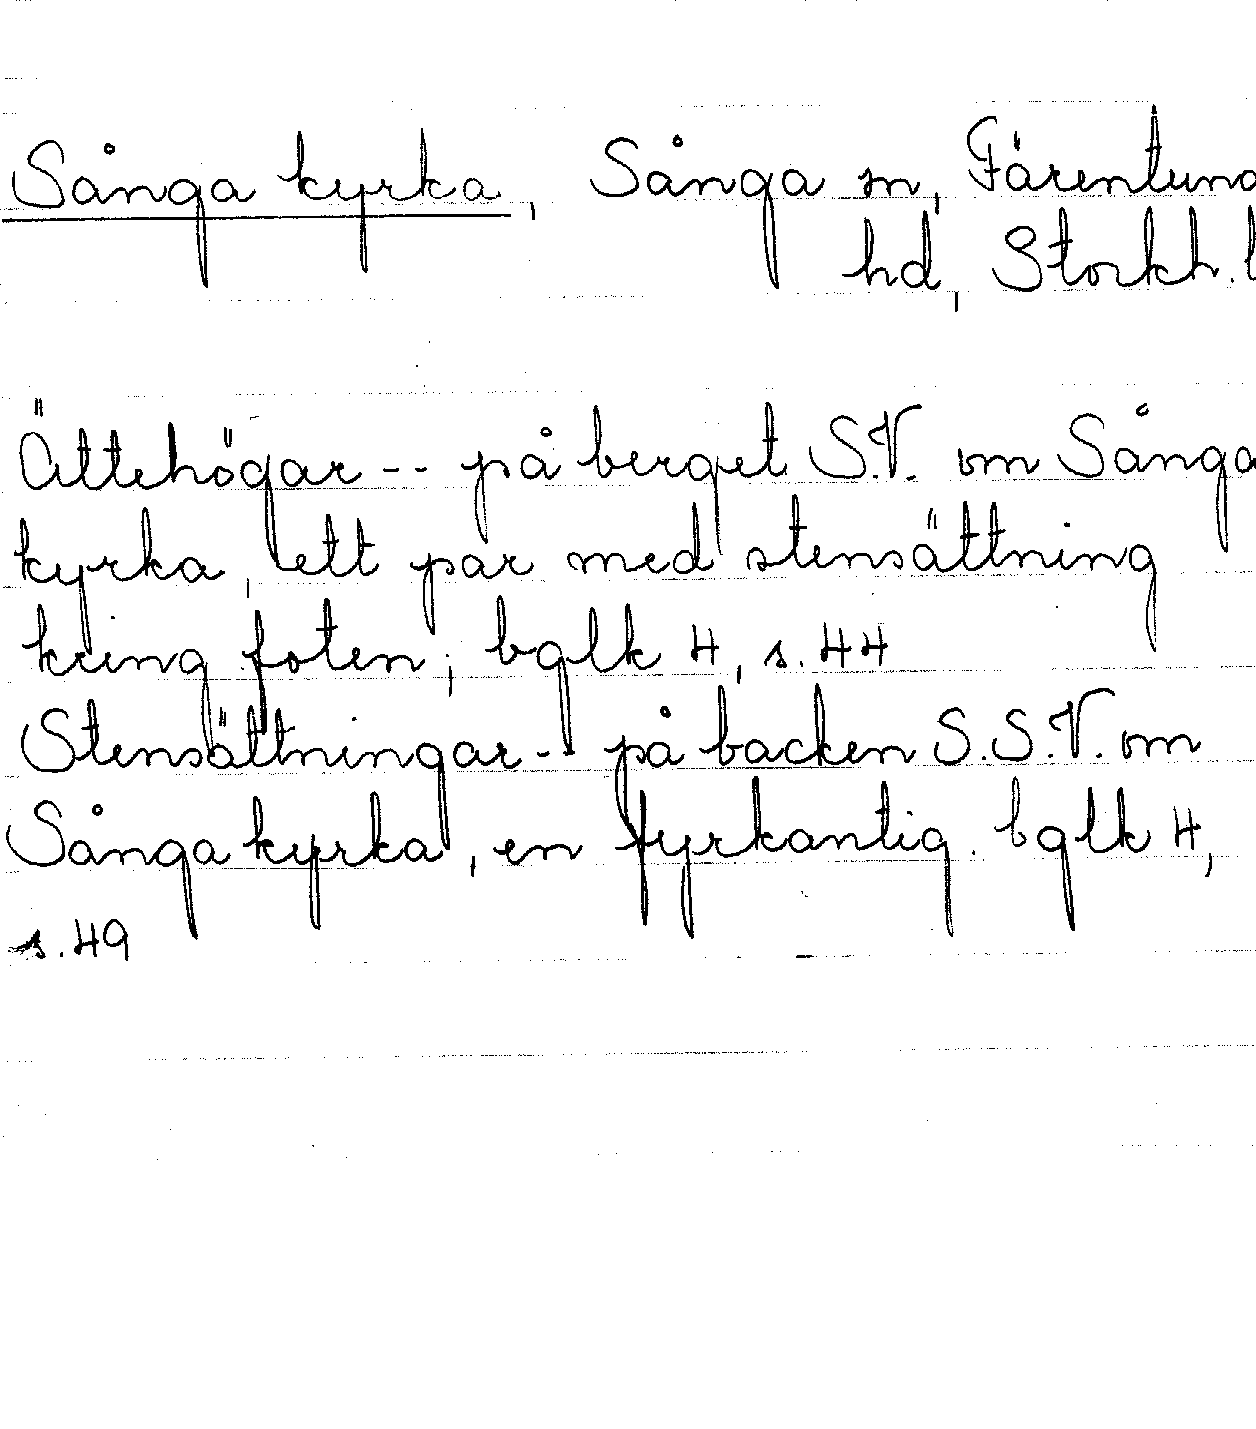 Sånga kyrka, Sånga sn, Färentuna
hd, Stockh. l
Ättehögar -- på berget S.V. om Sånga
kyrka, ett par med stensättning
kring foten; bglk 4, s. 44
Stensättningar -- på backen S.S.V. om
Sånga kyrka, en fyrkantig. bglk 4,
s. 49